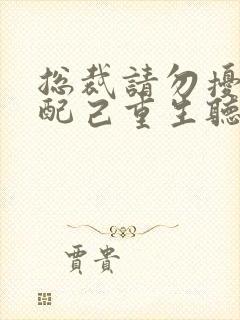 总裁請勿擾
配己重生聽
賈貴